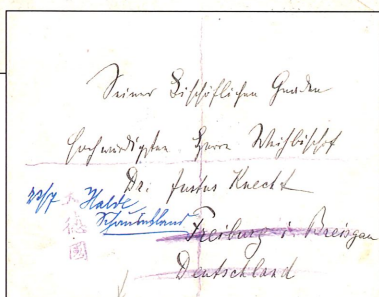 Seiner Bischöflichen Gnaden
Hochwürdigsten Herrn Weihbischof
Dr. Justus Knecht
23/7 Halde
Schauinsland
Freiburg i. Breisgau
Deutschland
大
德
國